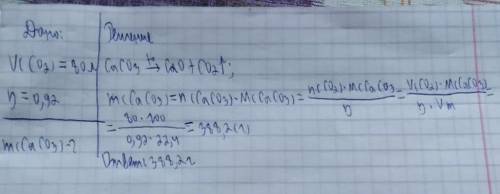 Дано:
V(CO₂) = 80 л
η = 0,92
m(CaCO₃) - ?
Решение
CaCO₃ →ᵗ° CaO + CO₂↑;
m(CaCO₃) = n(CaCO₃)·M(CaCO₃) = n(CO₂)·M(CaCO₃ / η = V(CO₂)·M(CaCO₃) / η·Vm =
= 80·100 / 0,92·22,4 = 388,2(г)
Ответ: 388,2г